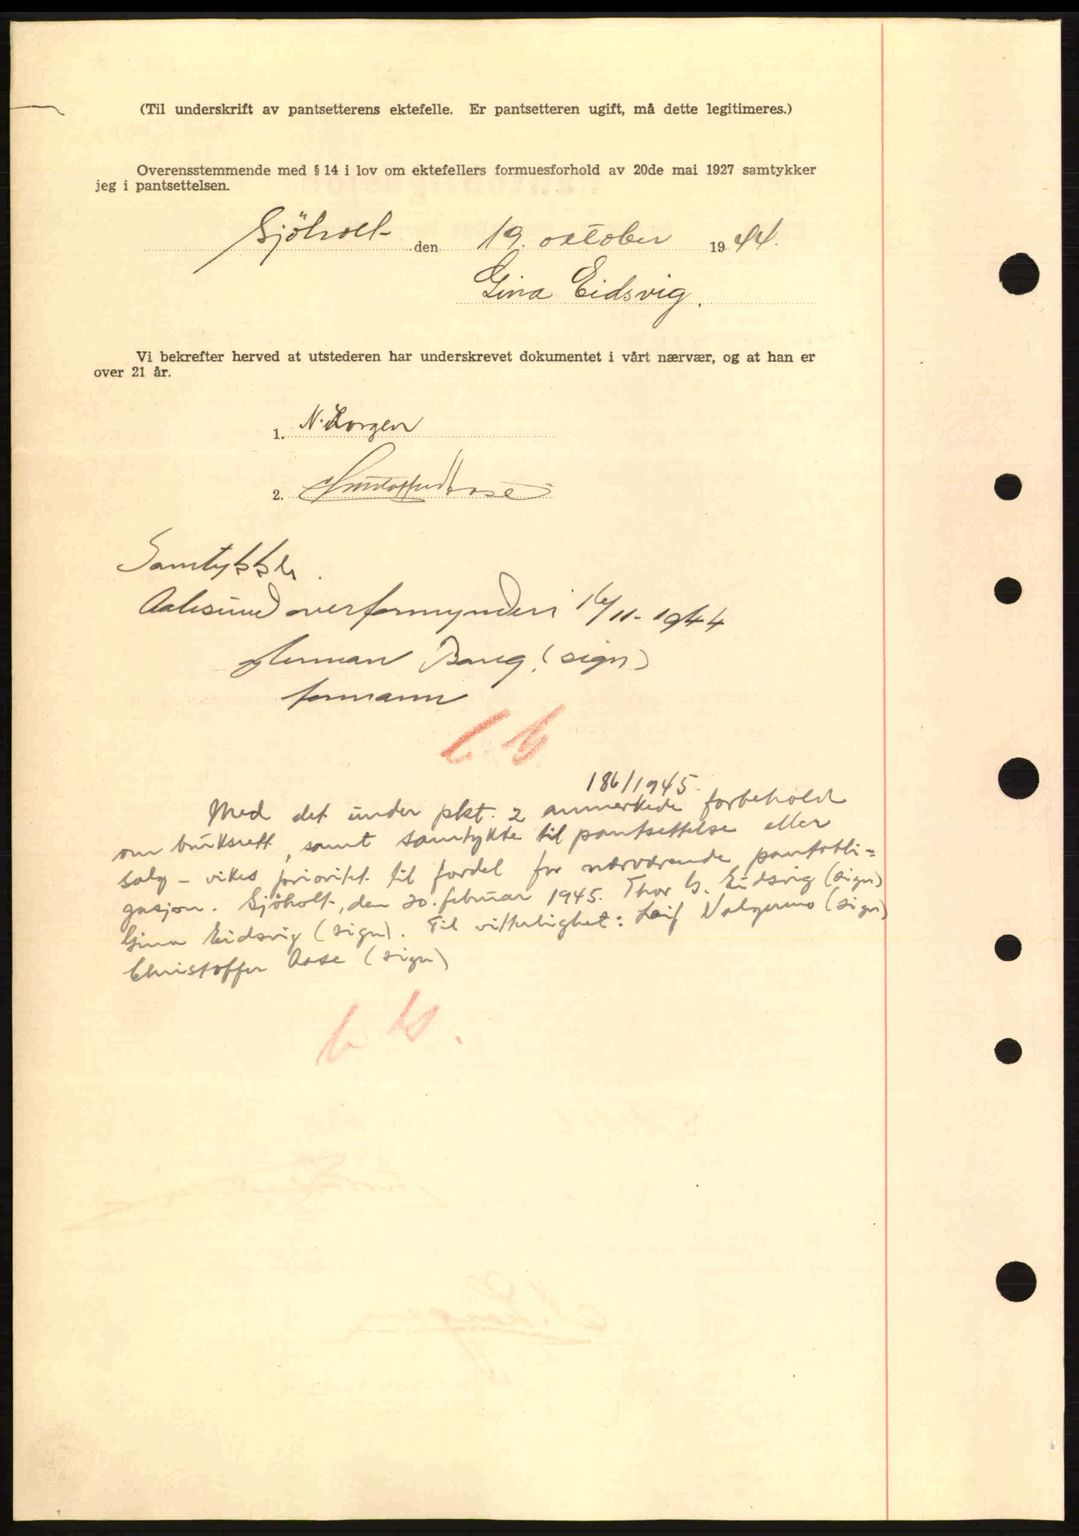 (Til underskrift av pantsetterens ektefelle. Er pantsetteren ugift, må dette legitimeres.)
Overensstemmende med § 14 i lov om ektefellers formuesforhold av 20de mai 1927 samtykker
jeg i pantsettelsen.
Sjöholt den 19. oktober 1944.
Gina Eidsvig.
Vi bekrefter herved at utstederen har underskrevet dokumentet i vårt nærvær, og at han er
over 21 år.
1. N. Lorgen
2. Christoffer Aase
Samtykkes.
Aalesund overformynderi 16/11-1944
Herman Bang (sign)
formann
186/1945
Med det under pkt. 2 anmerkede forbehold
om bruksrett, samt samtykke til pantsettelse eller
salg - vikes prioritet til fordel for nærværende pantobli=
gasjon. Sjöholt, den 20. februar 1945. Thor G. Eidsvig (sign)
Gina Eidsvig (sign). Til vitterlighet: Leif Valgermo (sign)
Christoffer Aase (sign)